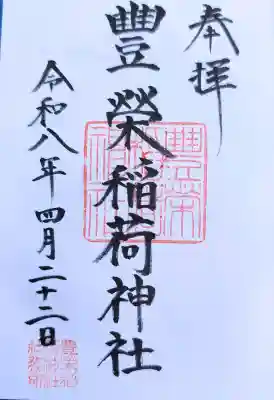 奉拝
豊榮稲荷神社
令和八年四月二十二日